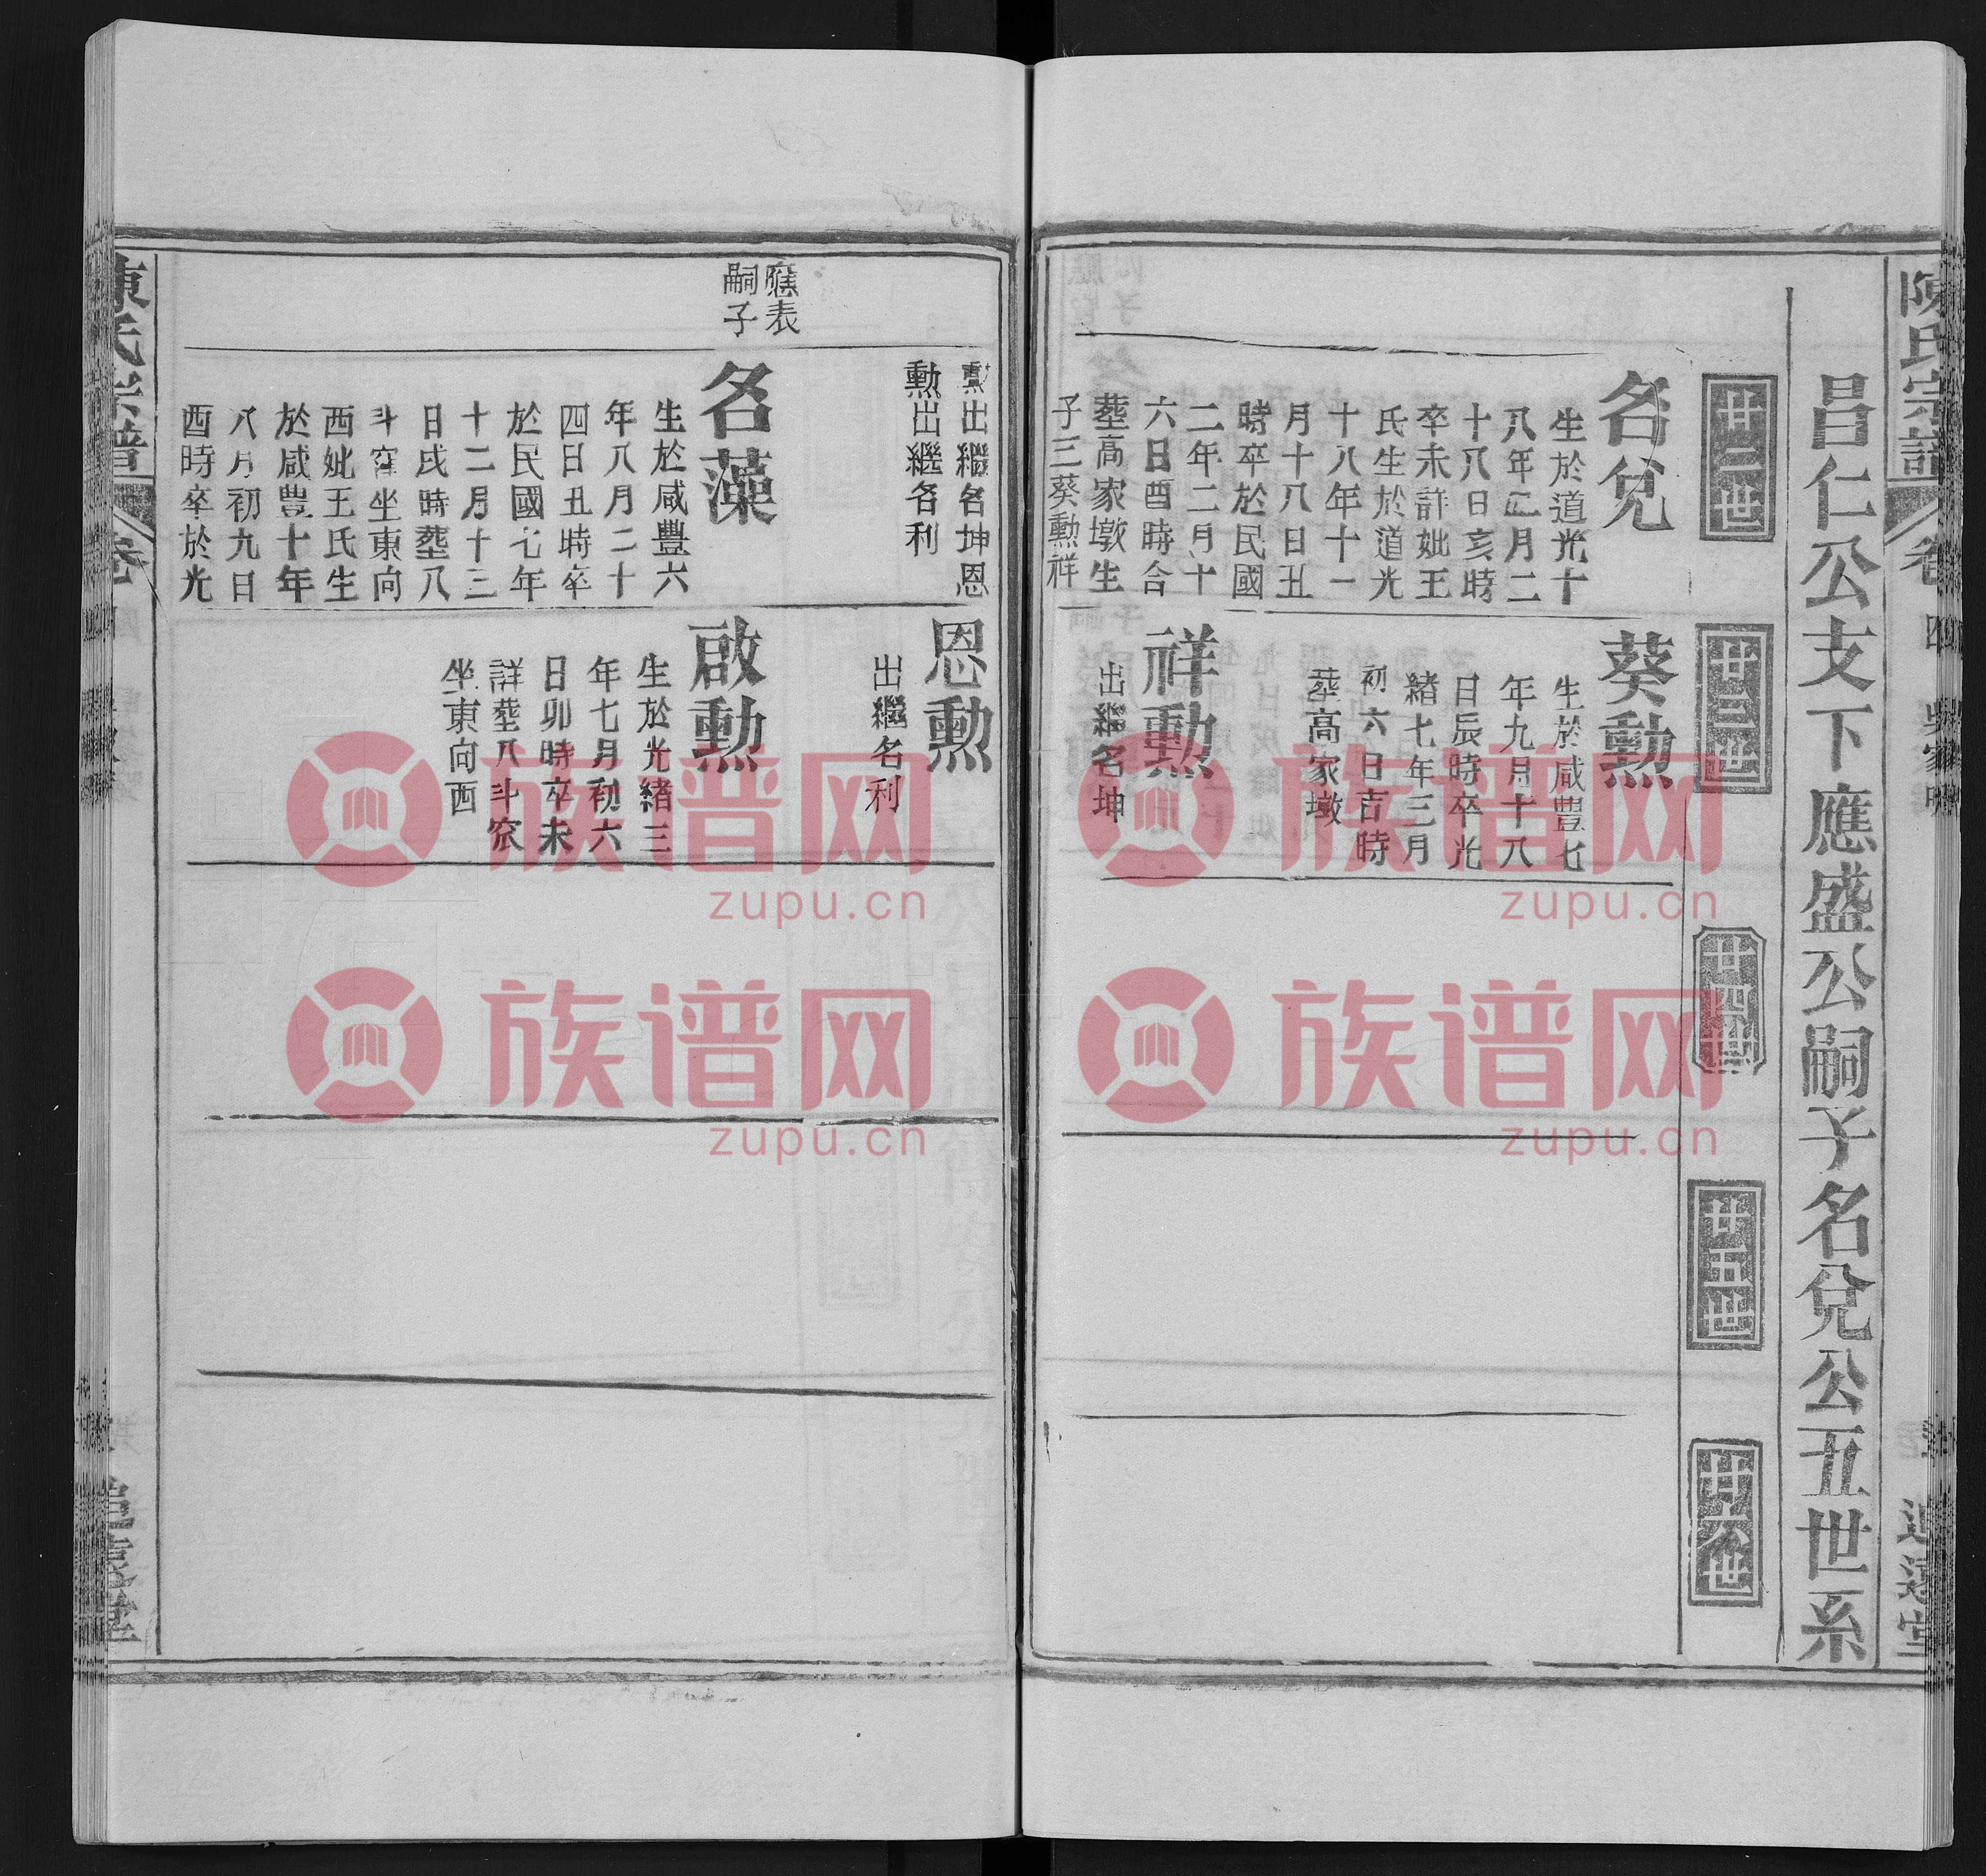 陳氏宗譜 卷四
昌仁公支下應盛公嗣子名兌公五世系
廿二世
廿三世
廿四世
廿五世
廿六世
名兌
生於道光十
八年正月二
十八日亥時
卒未詳妣王
氏生於道光
十八年十一
月十八日丑
時卒於民國
二年二月十
六日酉時合
塟高家墩生
子三葵勳祥
葵勳
生於咸豊七
年九月十八
日辰時卒光
緒七年三月
初六日吉時
塟高家墩
祥勳
出繼名坤
勳出繼名坤恩
勳出繼名利
恩勳
出繼名利
應表
嗣子
名藻
生於咸豐六
年八月二十
四日丑時卒
於民國七年
十二月十三
日戌時塟八
斗窪坐東向
西妣王氏生
於咸豊十年
八月初九日
酉時卒於光
啟勳
生於光緒三
年七月初六
日卯時卒未
詳塟八斗窊
坐東向西
族谱网
zupu.cn
族谱网
zupu.cn
族谱网
zupu.cn
族谱网
zupu.cn